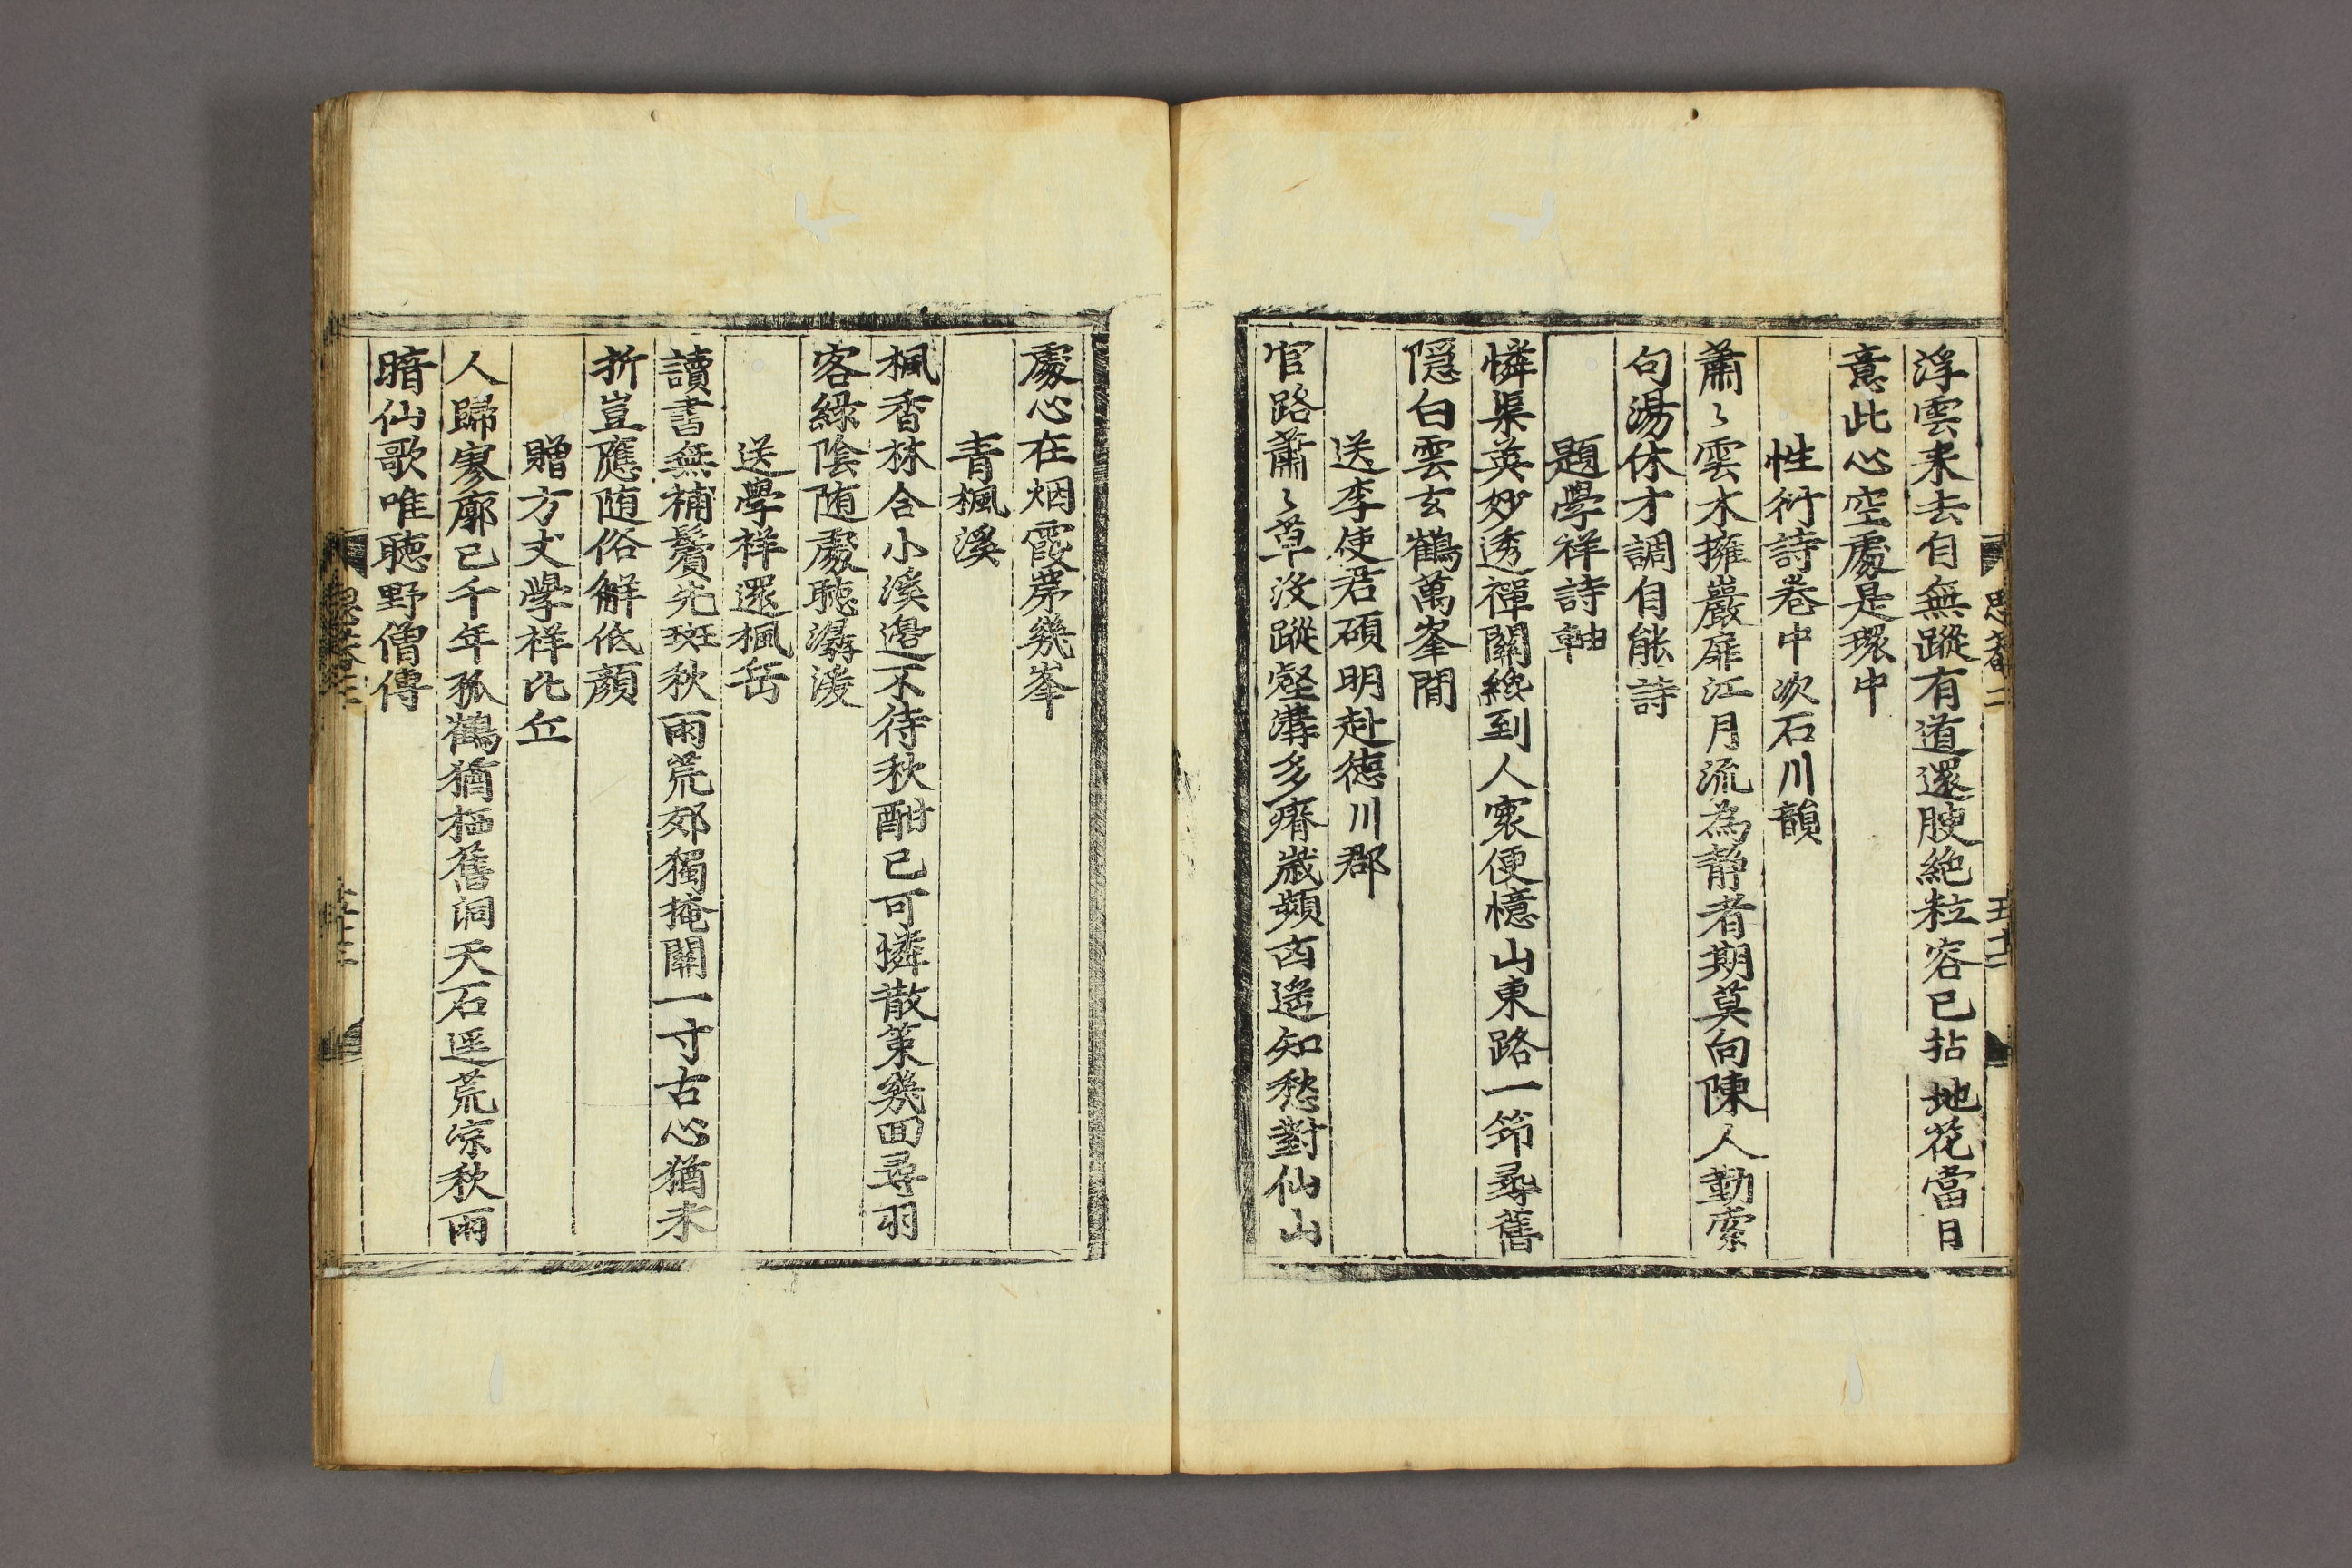 浮雲來去自無蹤有道還腴絶粒容已拈地花當日
意此心空處是環中
性衍詩卷中次石川韻
蕭〻雲木擁巖扉江月流為静者期莫向陳人勤索
句湯休才調自能詩
題學祥詩軸
憐渠英妙透禪關纔到人寰便憶山東路一笻尋舊
隱白雲玄鶴萬峯間
送李使君碩明赴德川郡
官路蕭〻草沒蹤壑溝多瘠歲頻凶遥知愁對仙山
處心在烟霞第幾峯
青楓溪
楓香林合小溪邊不待秋酣已可憐散策幾回尋羽
客緑陰随處聽潺湲
送學祥還楓岳
讀書無補鬢先斑秋雨荒郊獨掩關一寸古心猶未
折豈應随俗解低顔
贈方丈學祥比丘
人歸寥廓已千年孤鶴猶栖舊洞天石逕荒凉秋雨
暗仙歌唯聽野僧傳